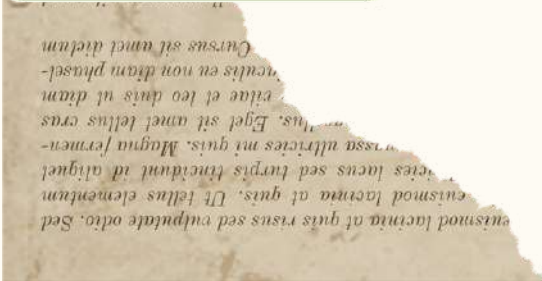 euismod lacinia at quis risus sed vulputate odio. Sed
euismod lacinia at quis. Ut tellus elementum
lacus sed turpis tincidunt id aliquet
ultricies mi quis. Magna fermen-
Eget sit amet tellus cras
et leo duis ut diam
eu non diam phasel-
Cursus sit amet dictum